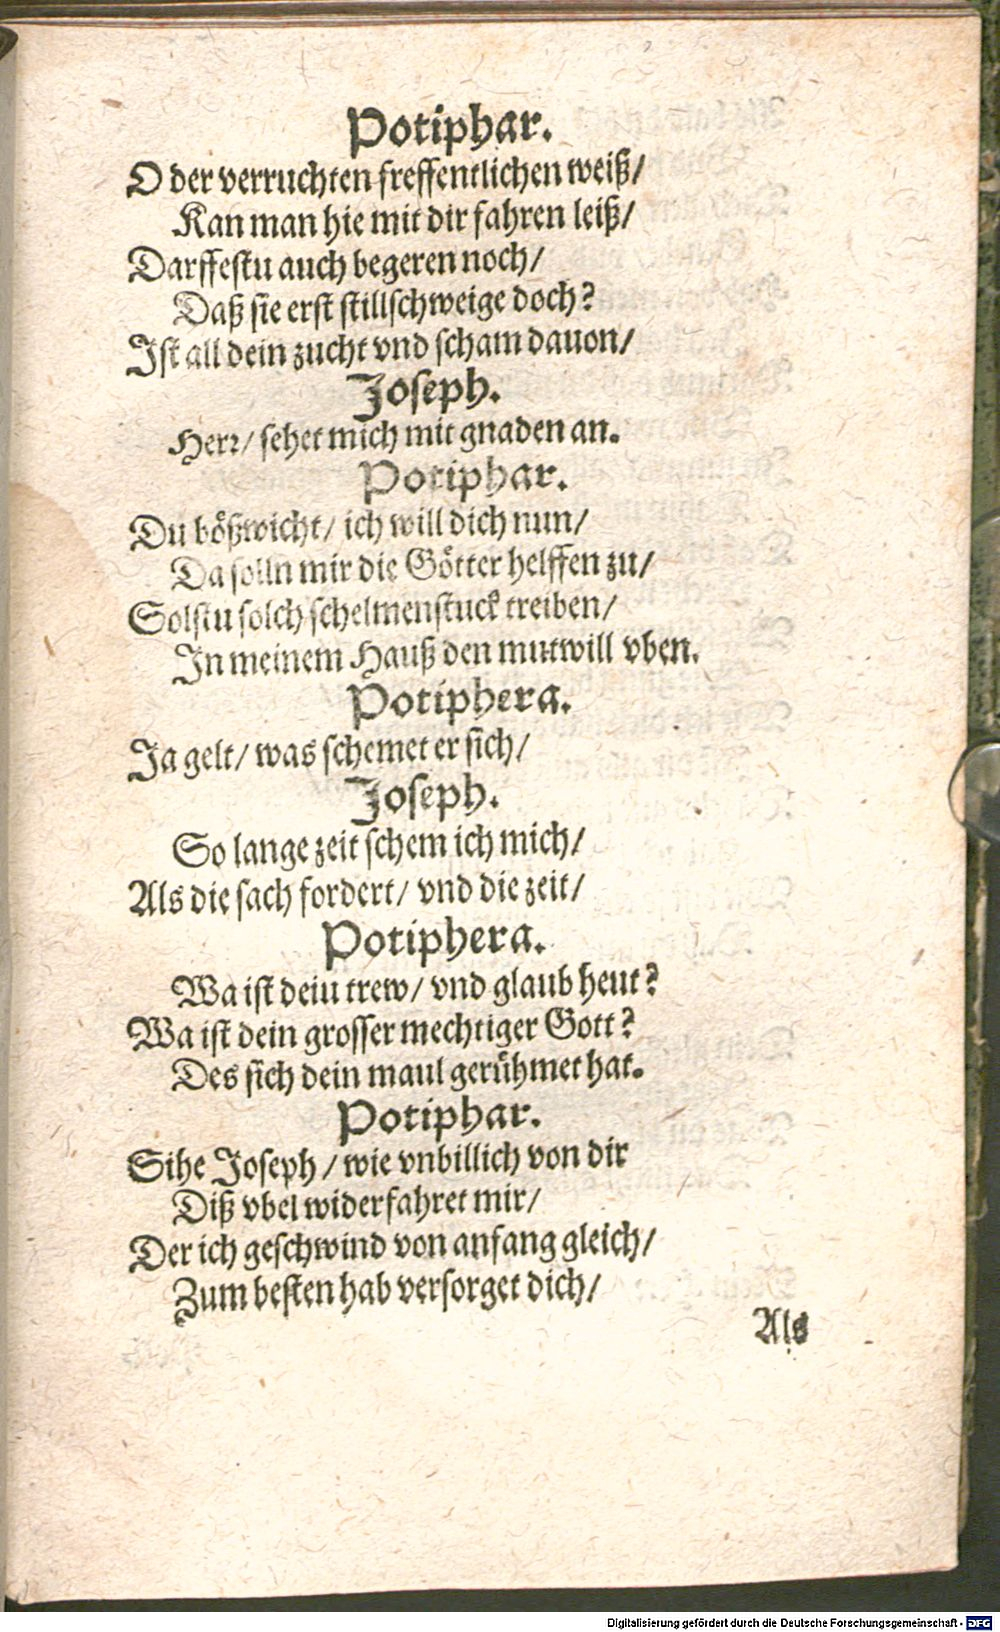 Potiphar.
O der verruchten freffentlichen weiß/
Kan man hie mit dir fahren leiß/
Darffestu auch begeren noch/
Daß sie erst stillschweige doch?
Ist all dein zucht vnd scham dauon/
Joseph.
Herr/ sehet mich mit gnaden an.
Potiphar.
Du bößwicht/ ich will dich nun/
Da solln mir die Götter helffen zu/
Solstu solch schelmenstuck treiben/
In meinem Hauß den mutwill vben.
Potiphera.
Ja gelt/ was schemet er sich/
Joseph.
So lange zeit schem ich mich/
Als die sach fordert/ vnd die zeit/
Potiphera.
Wa ist deiu trew/ vnd glaub heut?
Wa ist dein grosser mechtiger Gott?
Des sich dein maul gerühmet hat.
Potiphar.
Sihe Joseph/ wie vnbillich von dir
Diß vbel widerfahret mir/
Der ich geschwind von anfang gleich/
Zum besten hab versorget dich/
Als
Digitalisierung gefördert durch die Deutsche Forschungsgemeinschaft - DFG